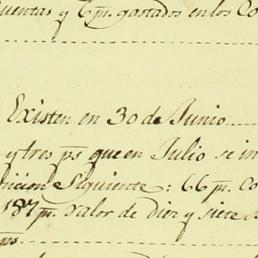 cuentas y 6 p.s gastados en los Co
Existen en 30 de Junio
y tres p.s que en Julio se in
dicion Siguiente: 66 p.s Co
187 p.s valor de diez y siete